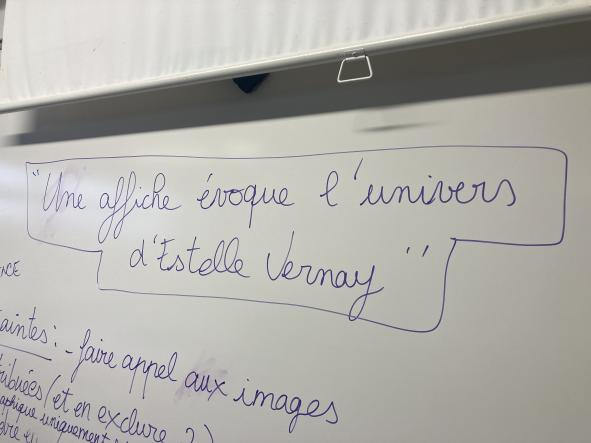 "Une affiche évoque l'univers
d'Estelle Vernay"
NCE
aintes : - faire appel aux images
ribuées (et en exclure ?)
uniquement